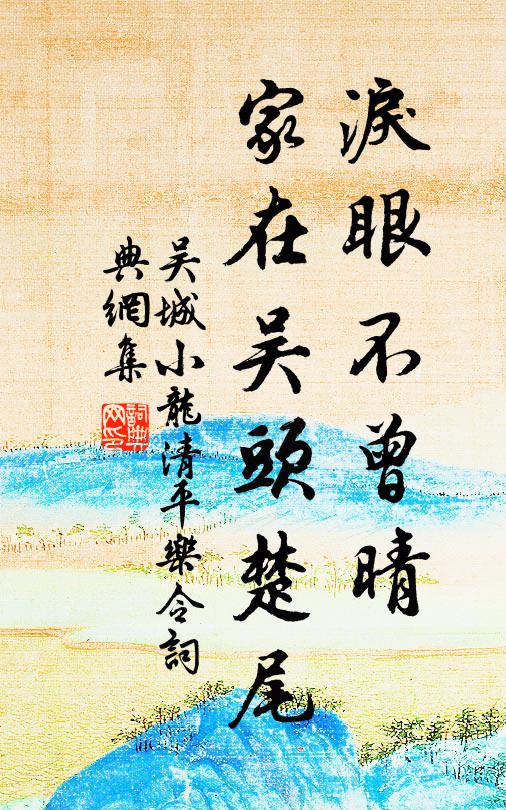 淚眼不曾晴
家在吳頭楚尾
吳城小龍清平樂令詞
典網集
詞典
网印